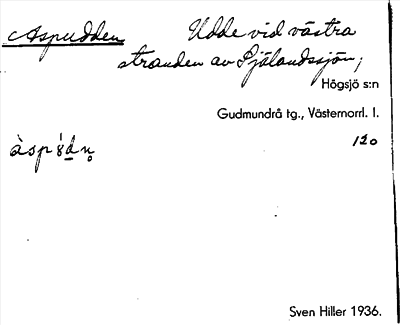 Aspudden Udde vid västra
stranden av Själandssjön,
Högsjö s:n
Gudmundrå tg., Västernorrl. l.
120
Sven Hiller 1936.